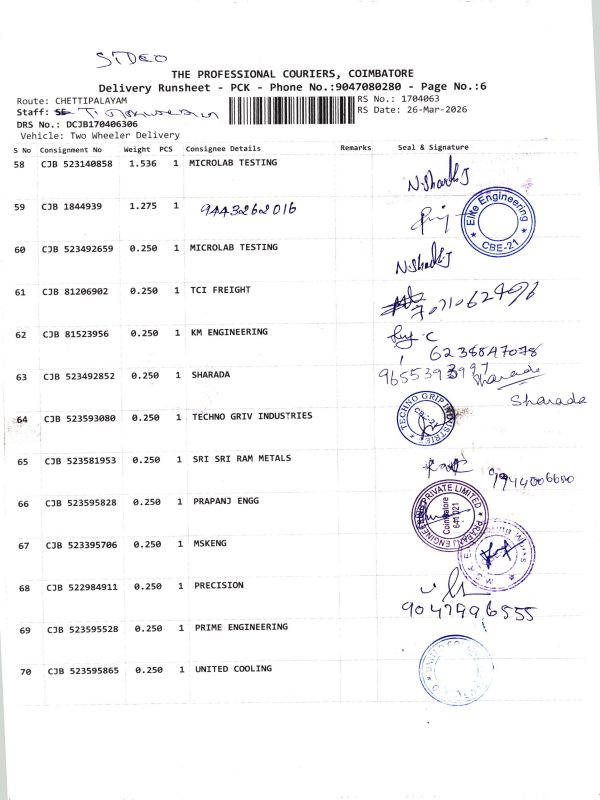 STDCO
THE PROFESSIONAL COURIERS, COIMBATORE
Delivery Runsheet - PCK - Phone No.:9047080280 - Page No.:6
Route: CHETTIPALAYAM
RS No.: 1704063
Staff:
RS Date: 26-Mar-2026
DRS No.: DCJB170406306
Vehicle: Two Wheeler Delivery
S No Consignment No Weight PCS Consignee Details Remarks Seal & Signature
58 CJB 523140858 1.536 1 MICROLAB TESTING
59 CJB 1844939 1.275 1 9443262016
Elite Engineering CBE-21
60 CJB 523492659 0.250 1 MICROLAB TESTING
61 CJB 81206902 0.250 1 TCI FREIGHT
62 CJB 81523956 0.250 1 KM ENGINEERING
6238847078
63 CJB 523492852 0.250 1 SHARADA
Sharada
Sharada
64 CJB 523593080 0.250 1 TECHNO GRIV INDUSTRIES TECHNO GRIP INDUSTRIES CBE-21
65 CJB 523581953 0.250 1 SRI SRI RAM METALS
9944006600
66 CJB 523595828 0.250 1 PRAPANJ ENGG
PRAPANJ ENGINEERING PRIVATE LIMITED Coimbatore 641 021
67 CJB 523395706 0.250 1 MSKENG
68 CJB 522984911 0.250 1 PRECISION
9047996555
69 CJB 523595528 0.250 1 PRIME ENGINEERING
70 CJB 523595865 0.250 1 UNITED COOLING